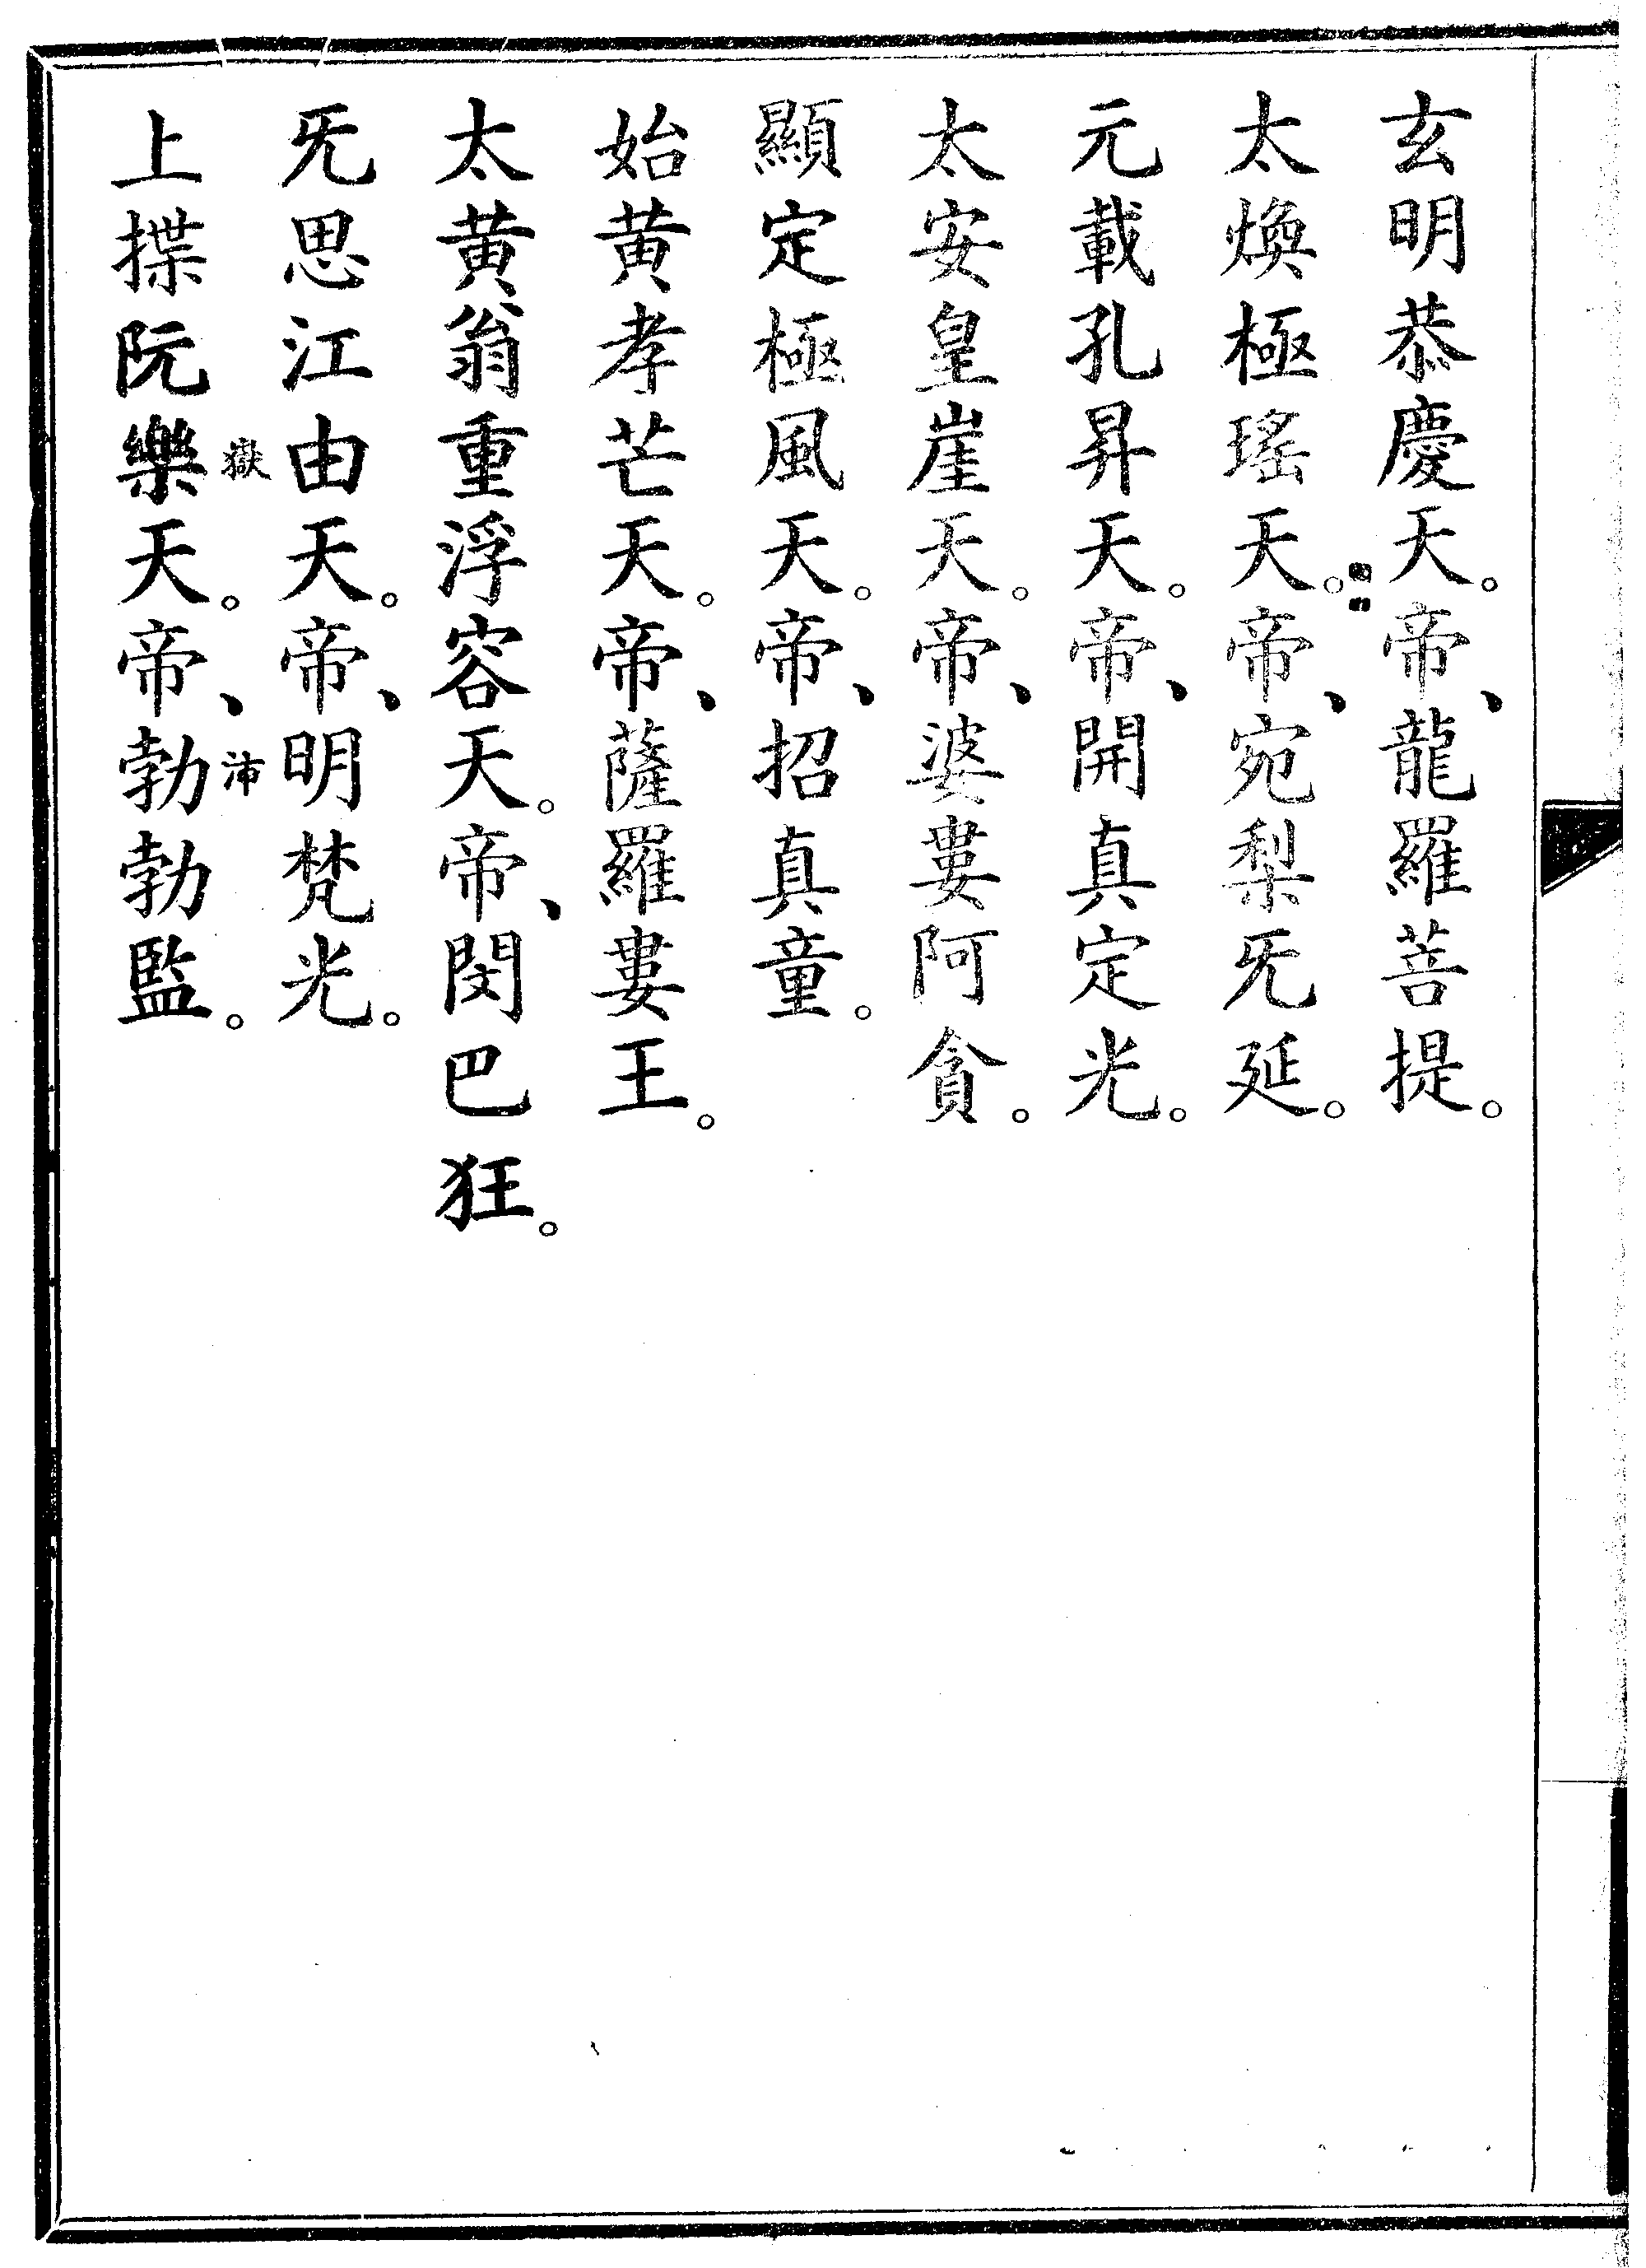 玄明恭慶天。帝、龍羅菩提。
太煥極瑤天。帝、宛梨旡延。
元載孔昇天。帝、開真定光。
太安皇崖天。帝、婆婁阿貪。
顯定極風天。帝、招真童。
始黄孝芒天。帝、薩羅婁王。
太黄翁重浮容天。帝、閔巴狂。
旡思江由天。帝、明梵光。
上揲阮樂嶽天。帝、勃沛勃監。